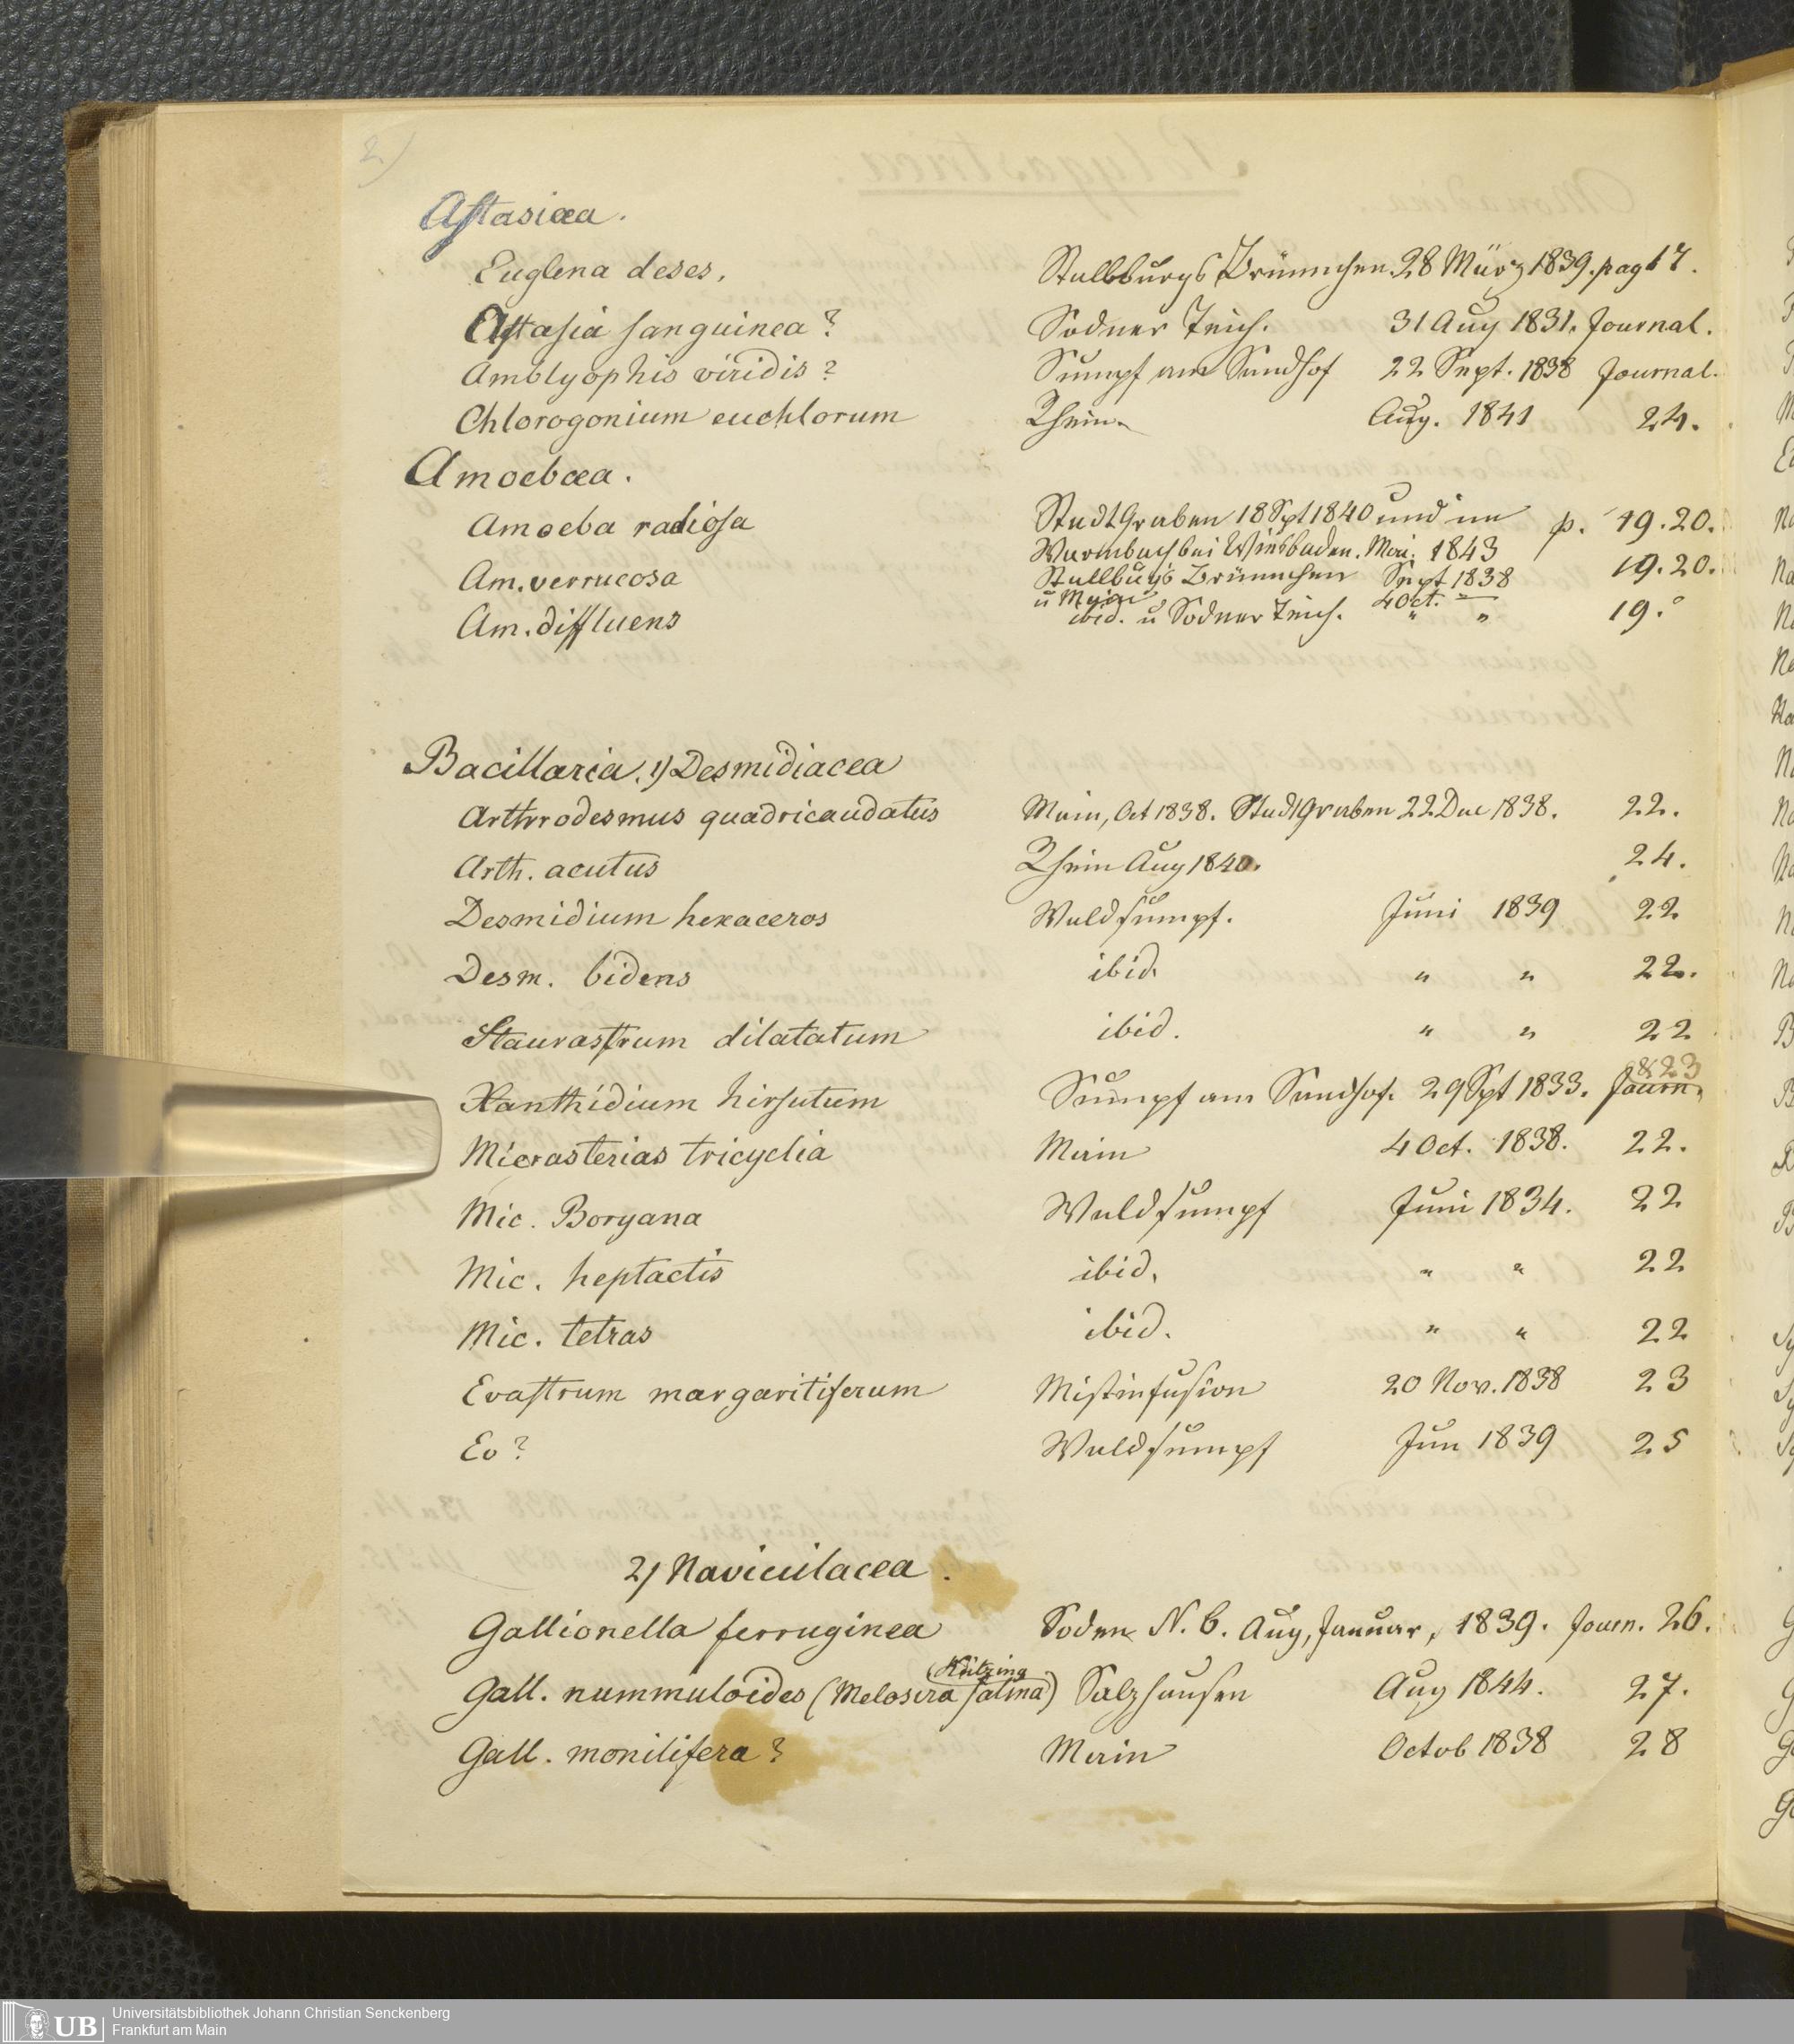 2)
Astasiaea.
Euglena deses. Stallburgs Brünnchen 28 März 1839. pag 17.
Astasia sanguinea? Sodner Teich. 31 Aug 1831. Journal.
Amblyophis viridis? Sumpf am Sandhof 22 Sept. 1838 Journal.
Chlorogonium euchlorum Rhein Aug. 1841 24.
Amoebaea.
Amoeba radiosa Stadtgraben 18 Spt 1840 und im p. 19.20.
Warmbach bei Wiesbaden. Mai. 1843
Am. verrucosa Stallburgs Brünnchen Sept 1838 19.20.
u Main 4 Oct. —
Am. diffluens ibid. u Sodner Teich. " " 19.
Bacillaria. 1) Desmidiacea
Arthrodesmus quadricaudatus Main, Oct 1838. Stadtgraben 22 Dec 1838. 22.
Arth. acutus Rhein Aug 1840. 24.
Desmidium hexaceros Waldsumpf. Juni 1839 22
Desm. bidens ibid. " " 22.
Staurastrum dilatatum ibid. " " 22
& 23
Xanthidium hirsutum Sumpf am Sandhof. 29 Spt 1833. Journ.
Micrasterias tricyclia Main 4 Oct. 1838. 22.
Mic. Boryana Waldsumpf Juni 1834. 22
Mic. heptactis ibid. " " 22
Mic. tetras ibid. " " 22
Evastrum margaritiferum Mistinfusion 20 Nov. 1838 23
Ev? Waldsumpf Jun 1839 25
2) Naviculacea.
Gallionella ferruginea Soden N. 6. Aug, Januar, 1839. Journ. 26.
(Kützing
Gall. nummuloides (Melosira salina) Salzhausen Aug 1844. 27.
Gall. monilifera? Main Octob 1838 28
UB
Universitätsbibliothek Johann Christian Senckenberg
Frankfurt am Main